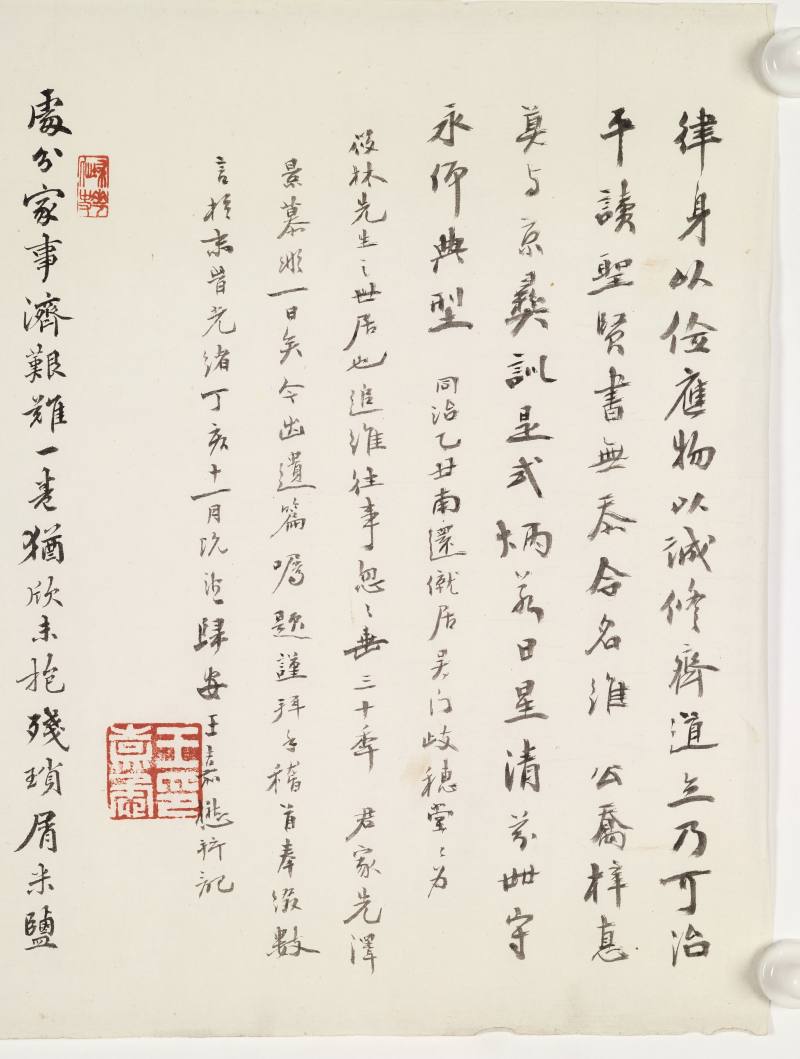 律身以儉應物以誠修齊道立乃可治
平讀聖賢書無忝令名維　公喬梓惪
莫与京彞訓是式炳若日星清芬世守
永仰典型　同治乙丑南還僦居吳門歧穗堂〻為
筱林先生之世居也追維往事忽〻垂三十年　君家先澤
景慕非一日矣今出遺篇囑題謹拜手稽首奉綴數
言於末峕光緒丁亥十一月既望歸安王嘉樾并記
處分家事濟艱難一卷猶欣未抱殘瑣屑米鹽